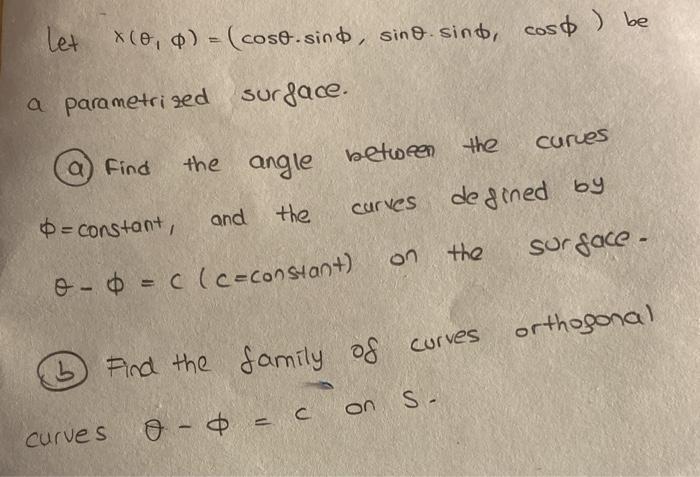 Let x(θ, ϕ) = (cosθ.sinϕ, sinθ.sinϕ, cosϕ) be
a parametrized surface.
(a) Find the angle between the curves
ϕ = constant, and the curves defined by
θ - ϕ = c (c=constant) on the surface.
(b) Find the family of curves orthogonal
curves θ - ϕ = c on S.